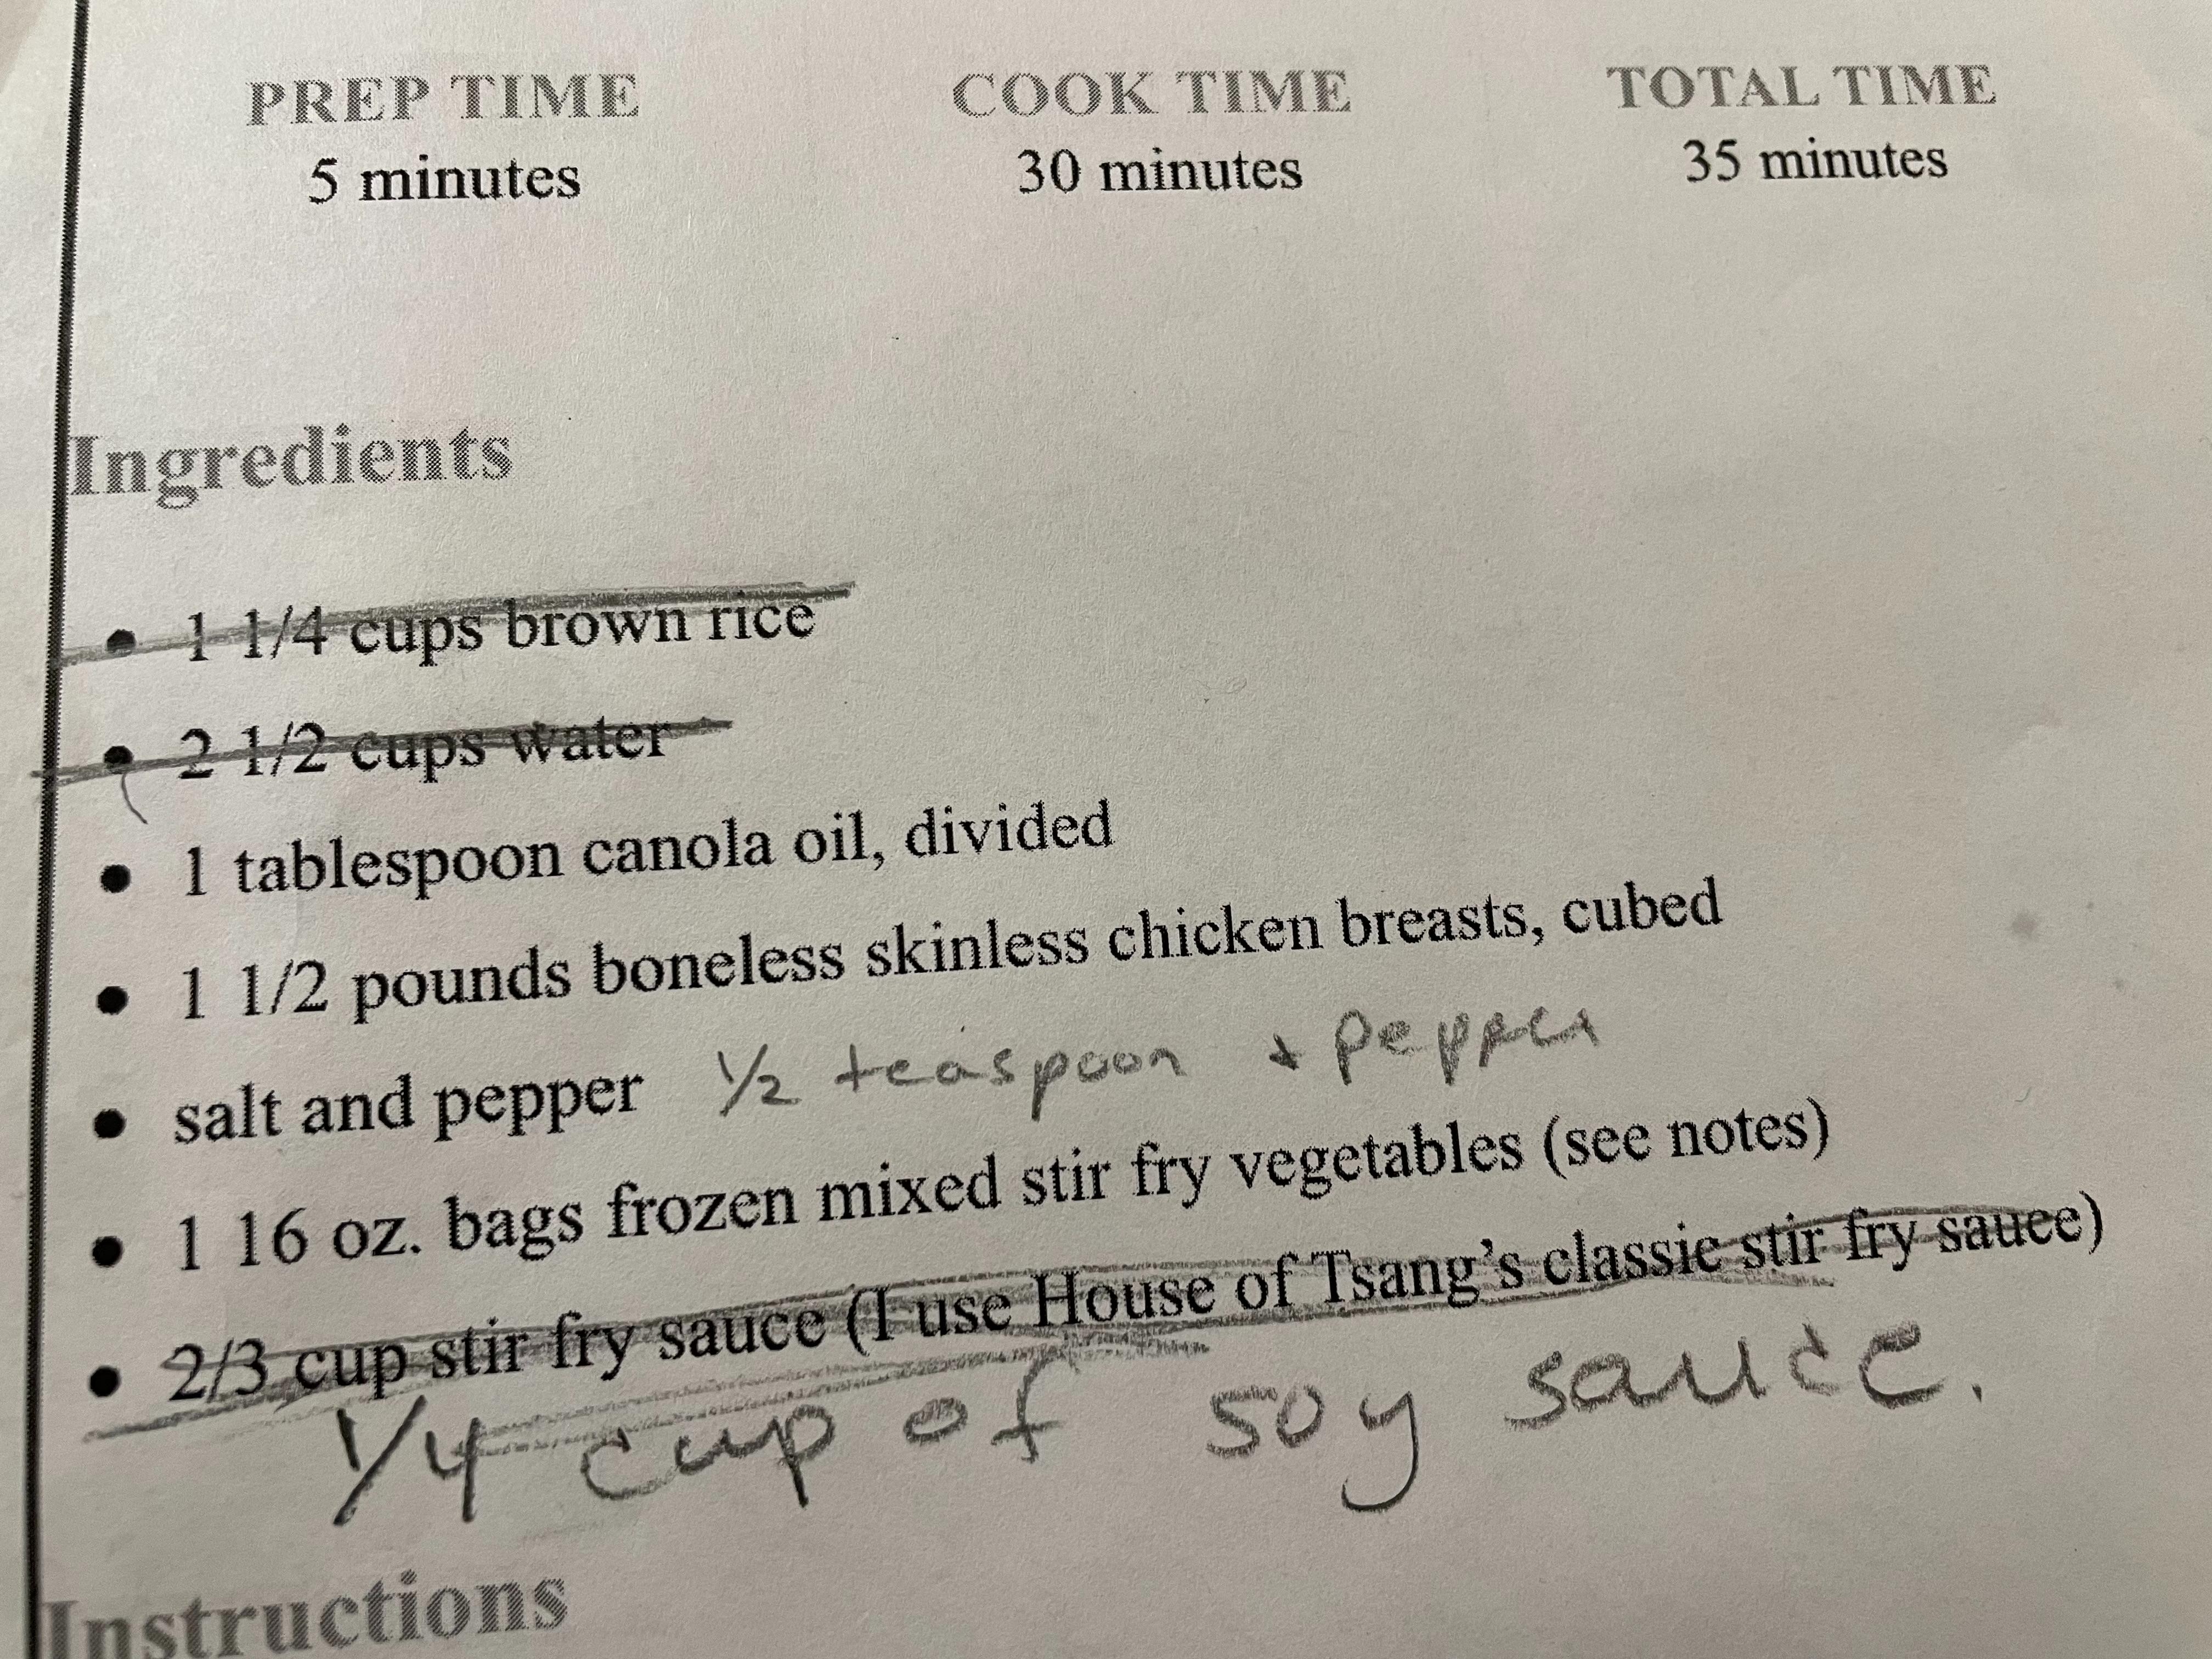 PREP TIME COOK TIME TOTAL TIME
5 minutes 30 minutes 35 minutes
Ingredients
• 1 1/4 cups brown rice
• 2 1/2 cups water
• 1 tablespoon canola oil, divided
• 1 1/2 pounds boneless skinless chicken breasts, cubed
• salt and pepper 1/2 teaspoon + pepper
• 1 16 oz. bags frozen mixed stir fry vegetables (see notes)
• 2/3 cup stir fry sauce (I use House of Tsang’s classic stir fry sauce)
1/4 cup of soy sauce.
Instructions